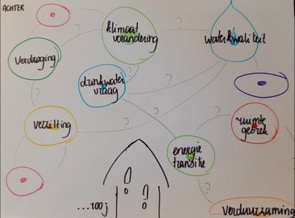 ACHTER
klimaat
verandering
waterkwaliteit
Verdroging
drinkwater
vraag
verzilting
ruimte
gebrek
energie
transitie
...100 j
Verduurzaming